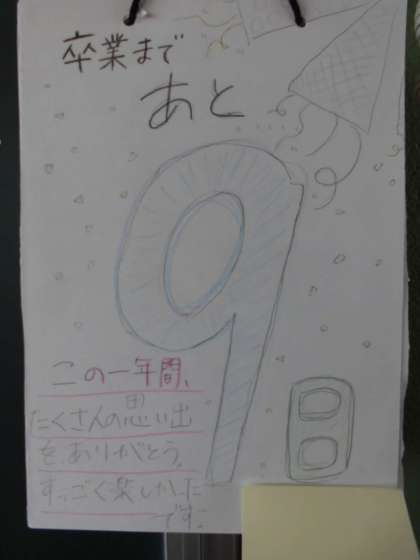 卒業まで
あと
9日
この一年間、
たくさんの思い出
を、ありがとう。
すっごく楽しかった
です。